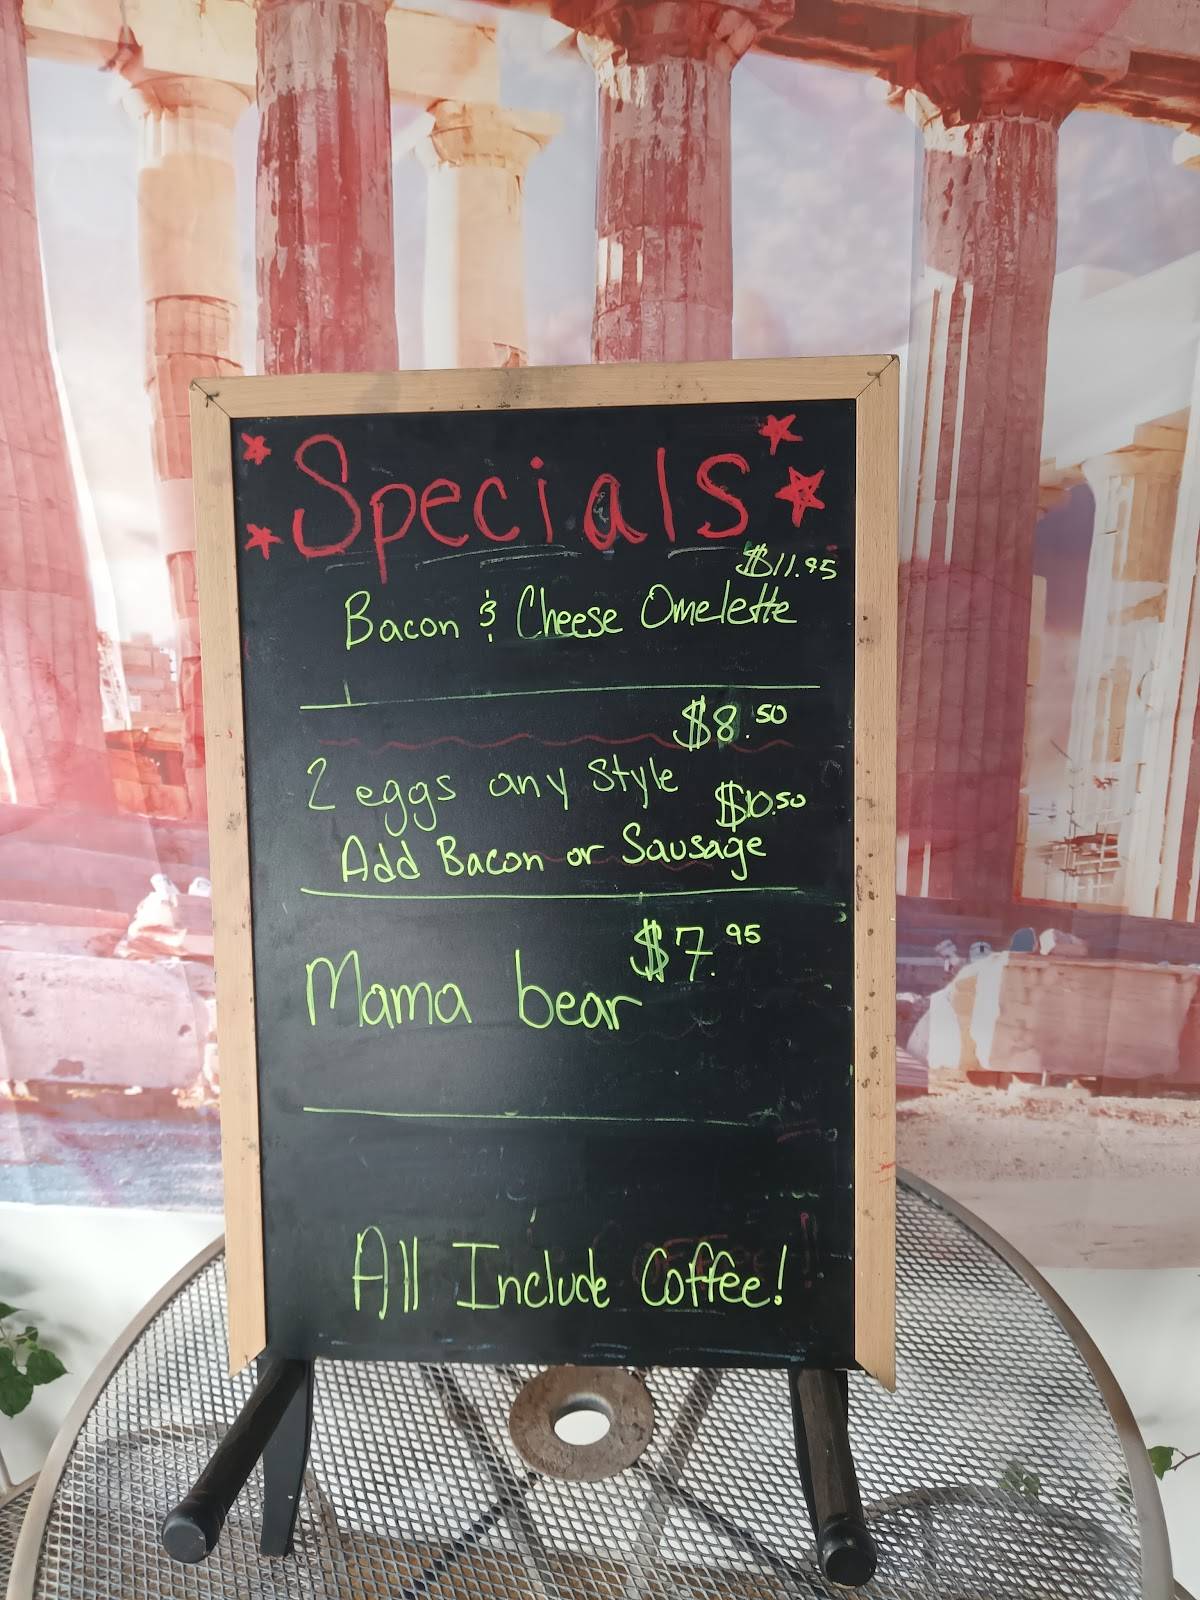 Specials
$11.95
Bacon & Cheese Omelette
$8.50
2 eggs any Style
$10.50
Add Bacon or Sausage
$7.95
Mama bear
All Include Coffee!